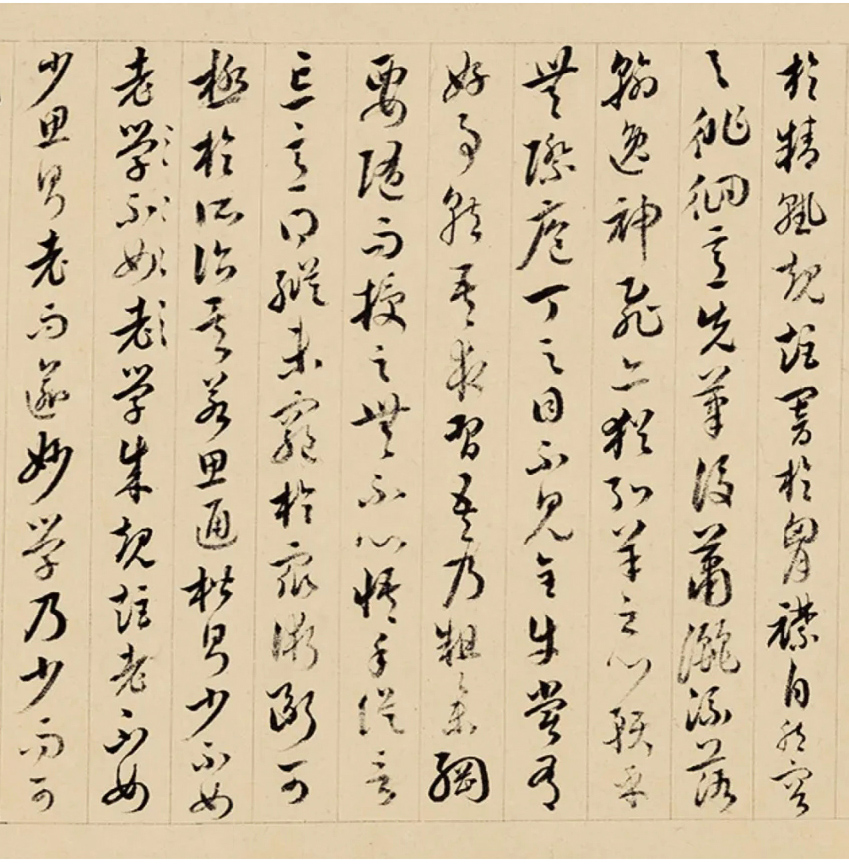 於精熟規矩闇於胸襟自然容
與徘徊意先筆後瀟灑流落
翰逸神飛亦猶弘羊之心預乎
無際庖丁之目不見全牛嘗有
好事就吾求習吾乃粗舉綱
要隨而授之無不心悟手從言
忘意得縱未窮於眾術斷可
極於所詣矣若思通楷則少不如
老學不如老學成規矩老不如
少思則老而逾妙學乃少而可